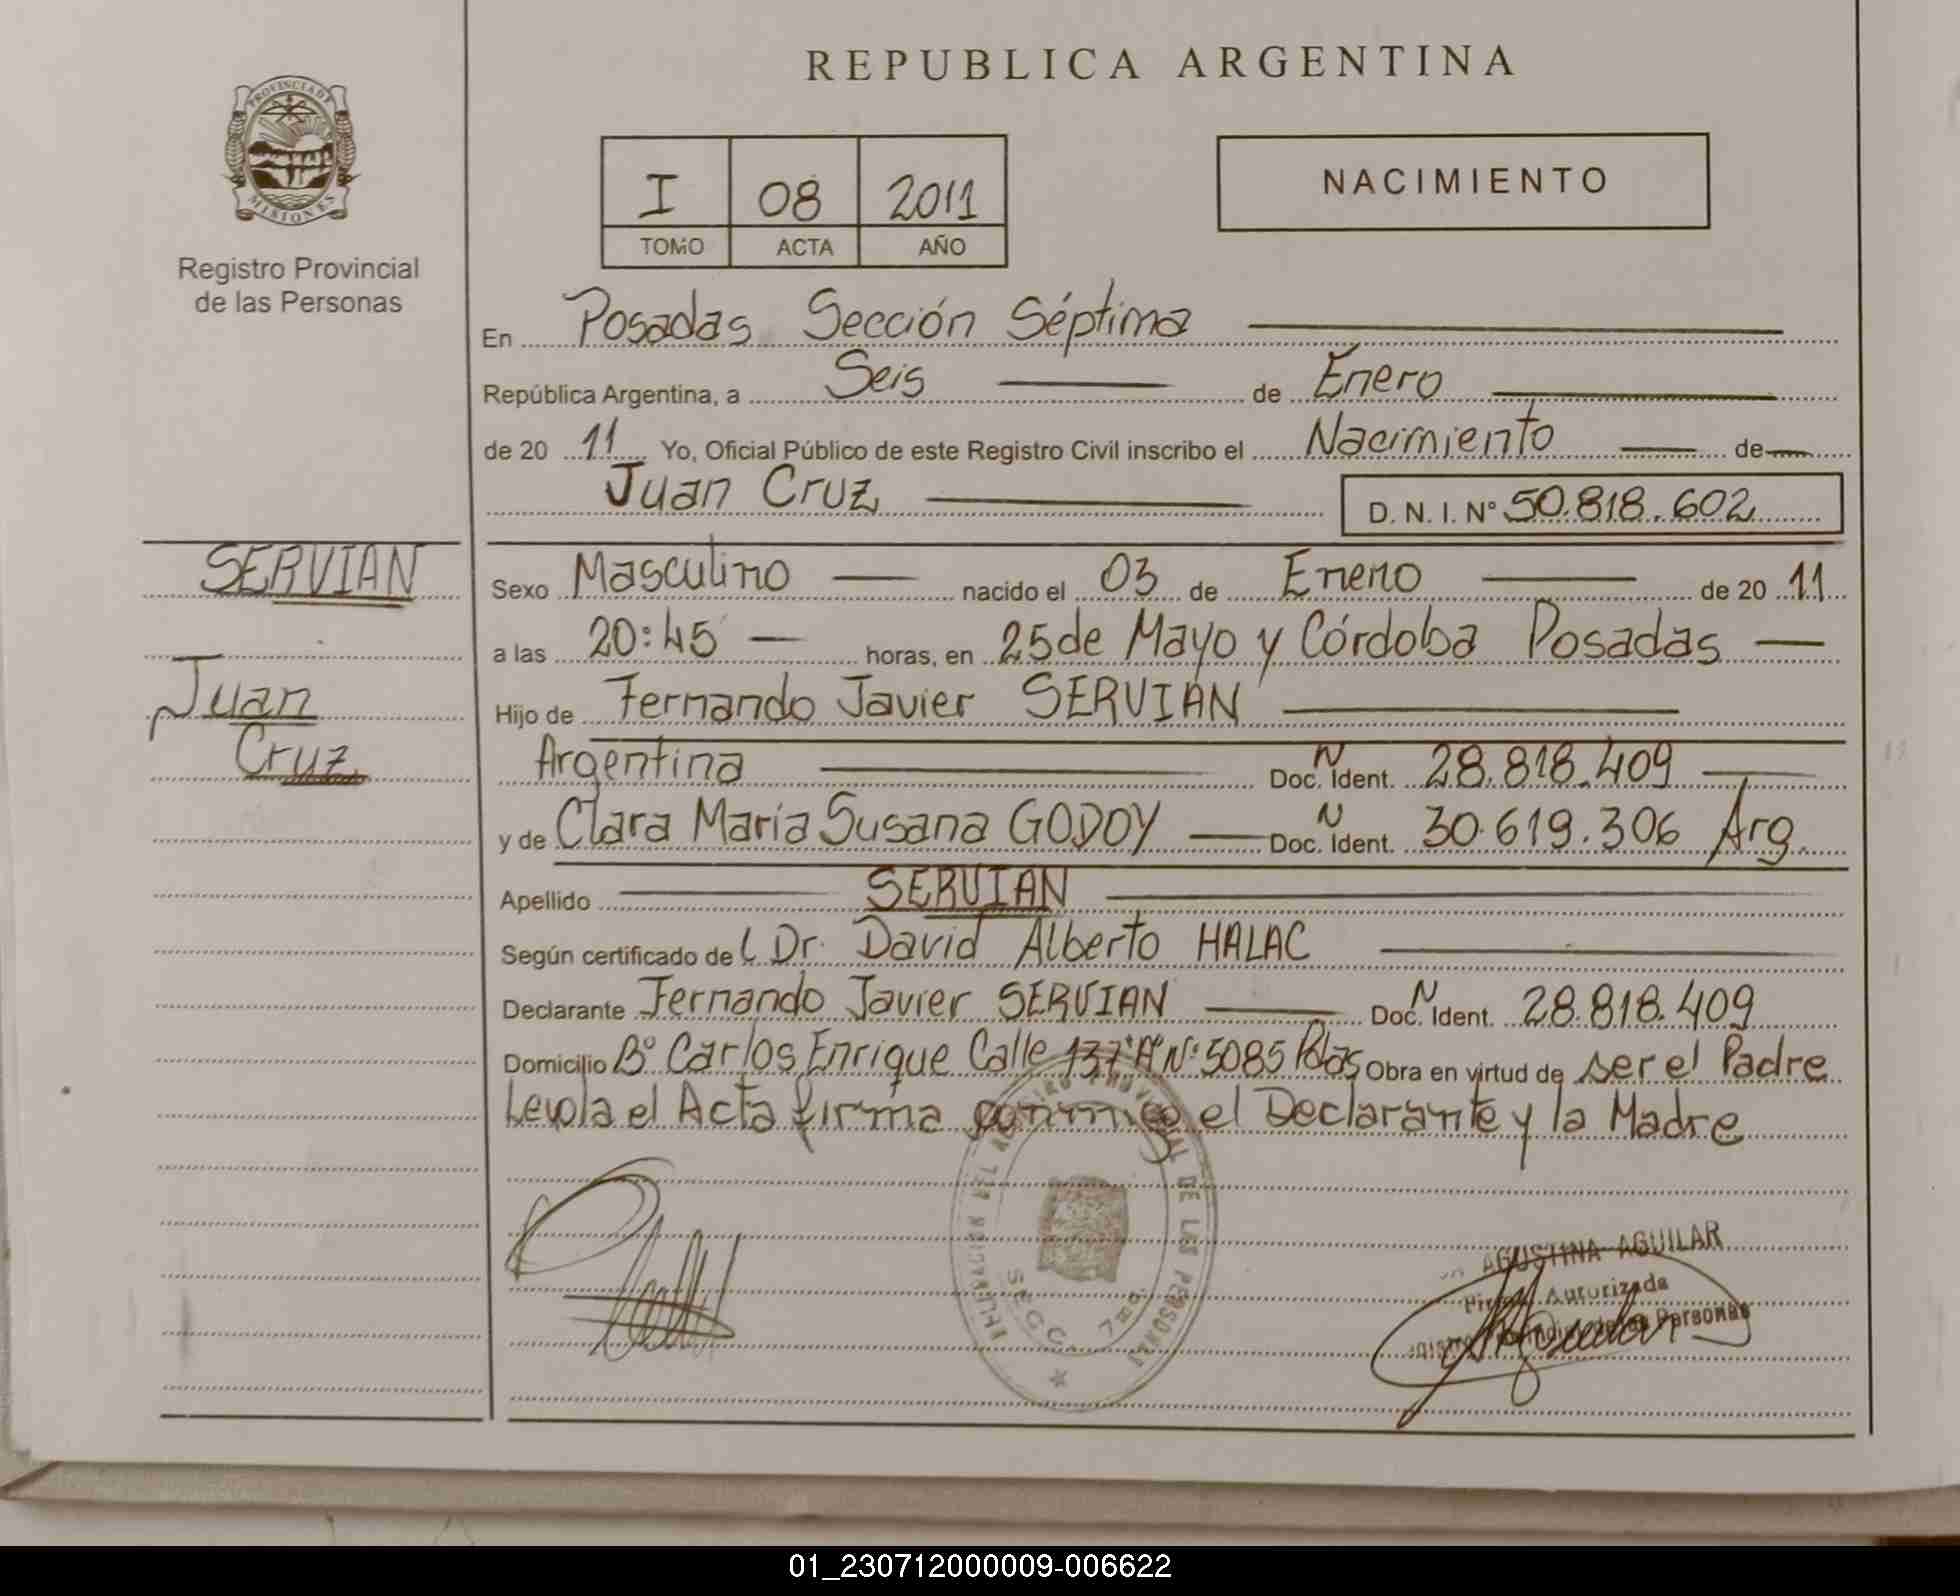 REPUBLICA ARGENTINA
PROVINCIA DE
MISIONES
Registro Provincial
de las Personas
I 08 2011
TOMO ACTA AÑO
NACIMIENTO
En Posadas Sección Séptima
República Argentina, a Seis de Enero
de 20 11 Yo, Oficial Público de este Registro Civil inscribo el Nacimiento de
Juan Cruz D. N. I. Nº 50.818.602
SERVIAN
Juan
Cruz
Sexo Masculino nacido el 03 de Enero de 20 11
a las 20:45 horas, en 25 de Mayo y Córdoba Posadas
Hijo de Fernando Javier SERVIAN
Argentina Doc. N Ident. 28.818.409
y de Clara María Susana GODOY Doc. N Ident. 30.619.306 Arg.
Apellido SERVIAN
Según certificado de l Dr. David Alberto HALAC
Declarante Fernando Javier SERVIAN Doc. N Ident. 28.818.409
Domicilio Bº Carlos Enrique Calle 137 "A" Nº 5085 Pdas Obra en virtud de ser el Padre
Leida el Acta firma conmigo el Declarante y la Madre
DE LAS PERSONAS
SECC. 7ma.
AGUSTINA AGUILAR
Autorizada
Personas
01_230712000009-006622